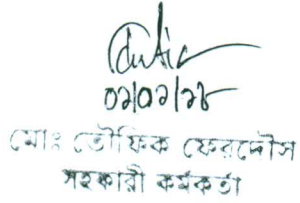 ০১/০১/১৮
মোঃ তৌফিক ফেরদৌস
সহকারী কর্মকর্তা